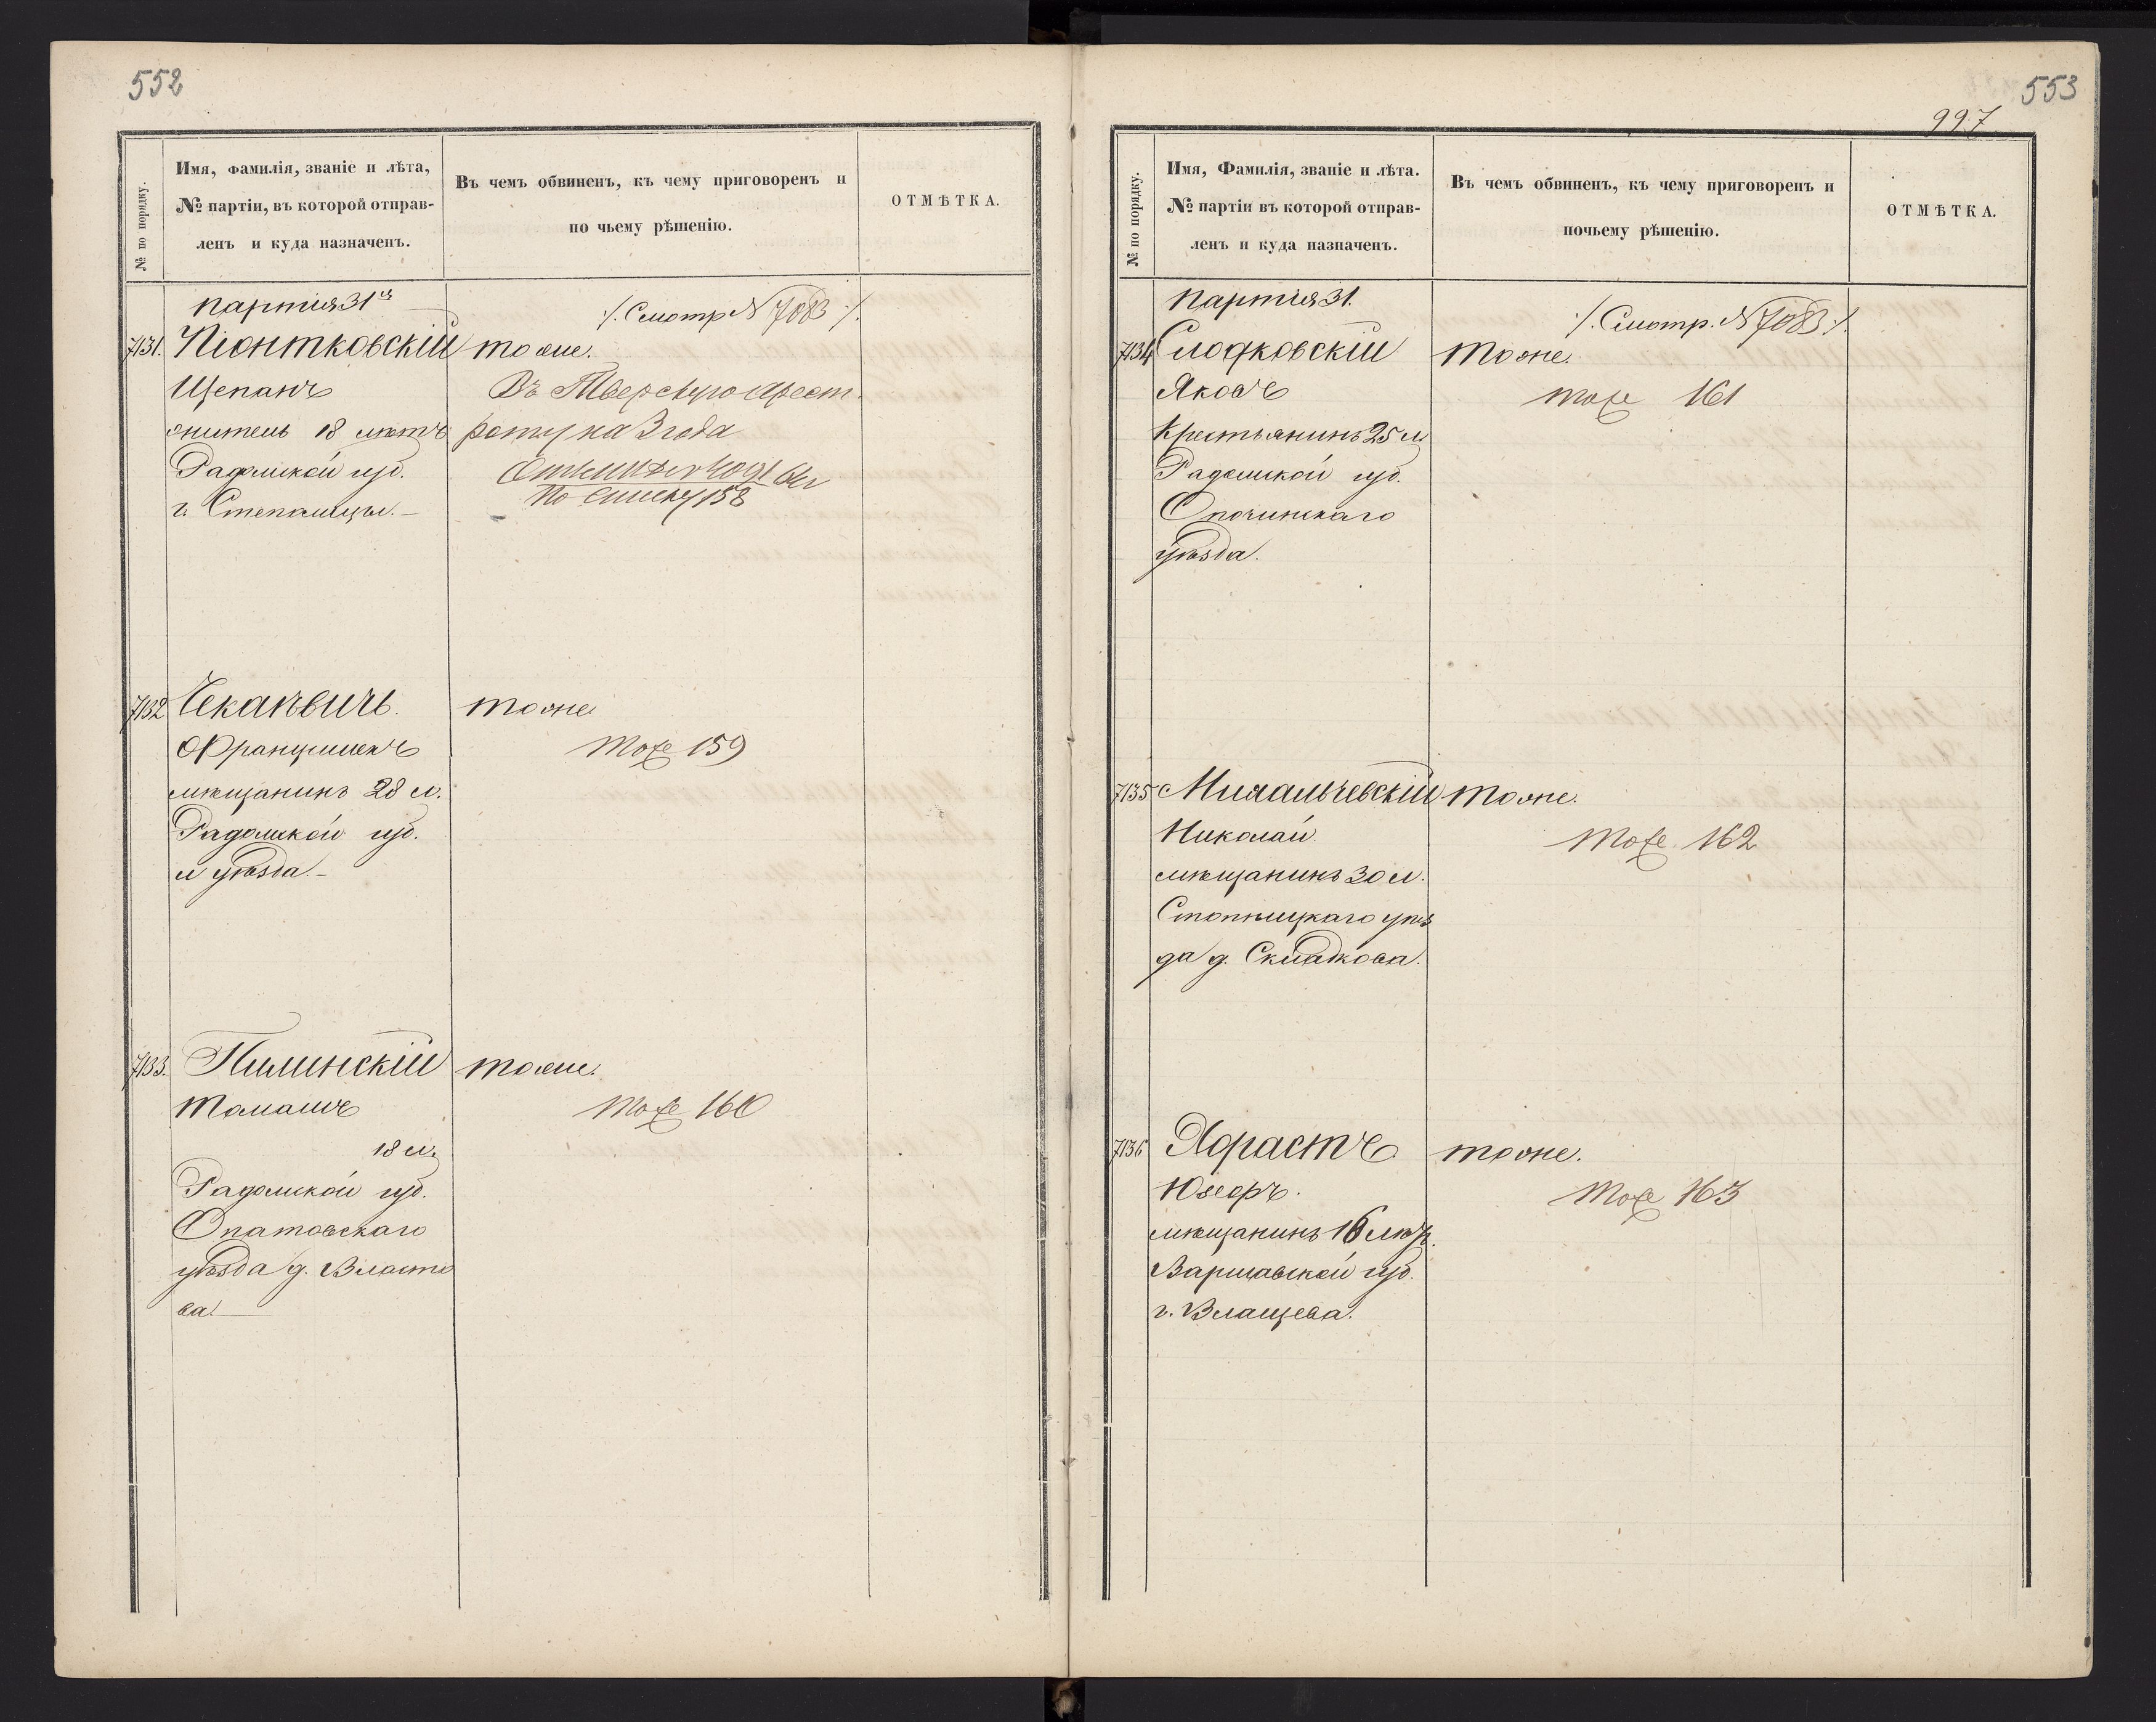 552
№ по порядку.
Имя, Фамилія, званіе и лѣта,
№ партіи, въ которой отправ-
ленъ и куда назначенъ.
Въ чемъ обвиненъ, къ чему приговоренъ и
по чьему рѣшенію.
ОТМѢТКА.
партія 31я
/. Смотр № 7083 /.
7131. Піонтковскій тоже.
Щепанъ
Въ Тверскую Арест.
житель 18 лѣтъ
роту на 3 года
Радомской губ.
г. Степаницы.
По списку 158
7132 Чекаевичь. тоже
Францишекъ
тоже 159
мѣщанинъ 28 л.
Радомской губ.
и уѣзда.
7133. Пилинскій тоже.
Томашъ
тоже 160
18 л.
Радомской губ.
Опатовскаго
уѣзда д. Власто
ва.
553
997
№ по порядку.
Имя, Фамилія, званіе и лѣта.
№ партіи въ которой отправ-
ленъ и куда назначенъ.
Въ чемъ обвиненъ, къ чему приговоренъ и
почьему рѣшенію.
ОТМѢТКА.
партія 31.
/. Смотр. № 7083 /.
7134 Слодковскій тоже.
Яковъ
тоже 161
Крестьянинъ 25 л.
Радомской губ.
Опочинскаго
уѣзда.
7135 Михальчевскій тоже.
Николай.
тоже 162
мѣщанинъ 30 л.
Стопницкаго уѣз
да д.
7136 Храстъ тоже.
Юзефъ.
тоже 163
мѣщанинъ 16 лѣтъ.
Варшавской губ.
г. Влащева.